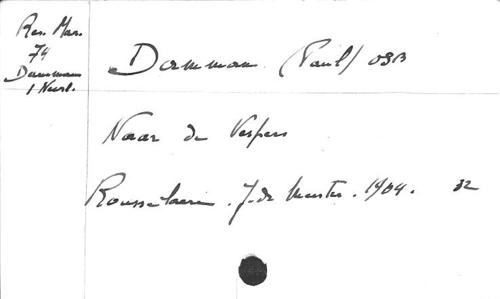 Res. Mar.
74
Damman
1 Neerl.
Damman (Paul) OSB
Naar de Vespers
Rousselaere. J. de Meester. 1904. 32